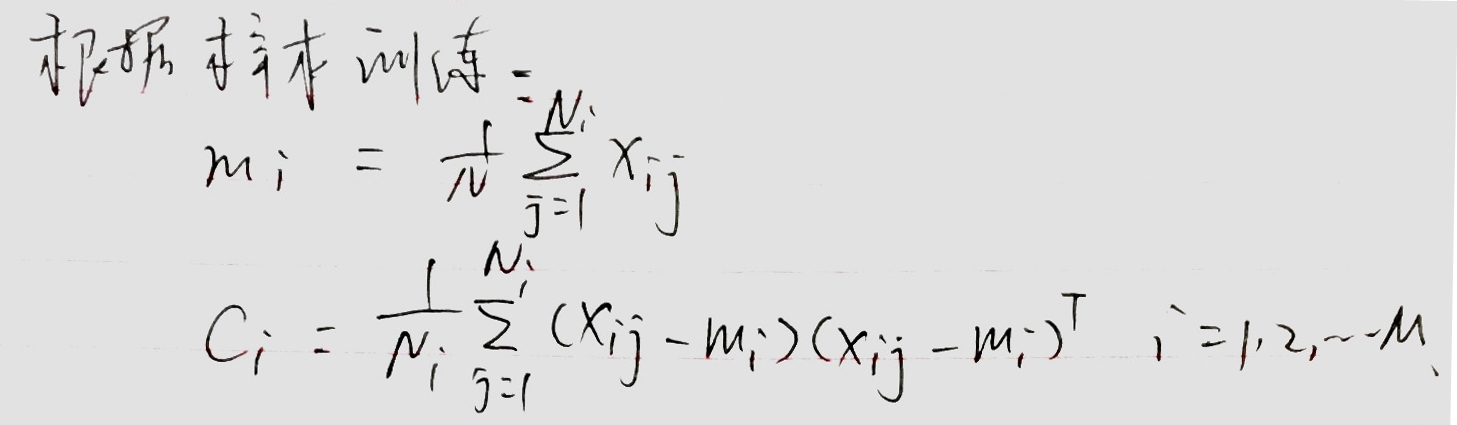 根据样本训练：
$m_i = \frac{1}{N} \sum_{j=1}^{N_i} x_{ij}$
$C_i = \frac{1}{N_i} \sum_{j=1}^{N_i} (x_{ij} - m_i)(x_{ij} - m_i)^T \quad i = 1, 2, \cdots M.$